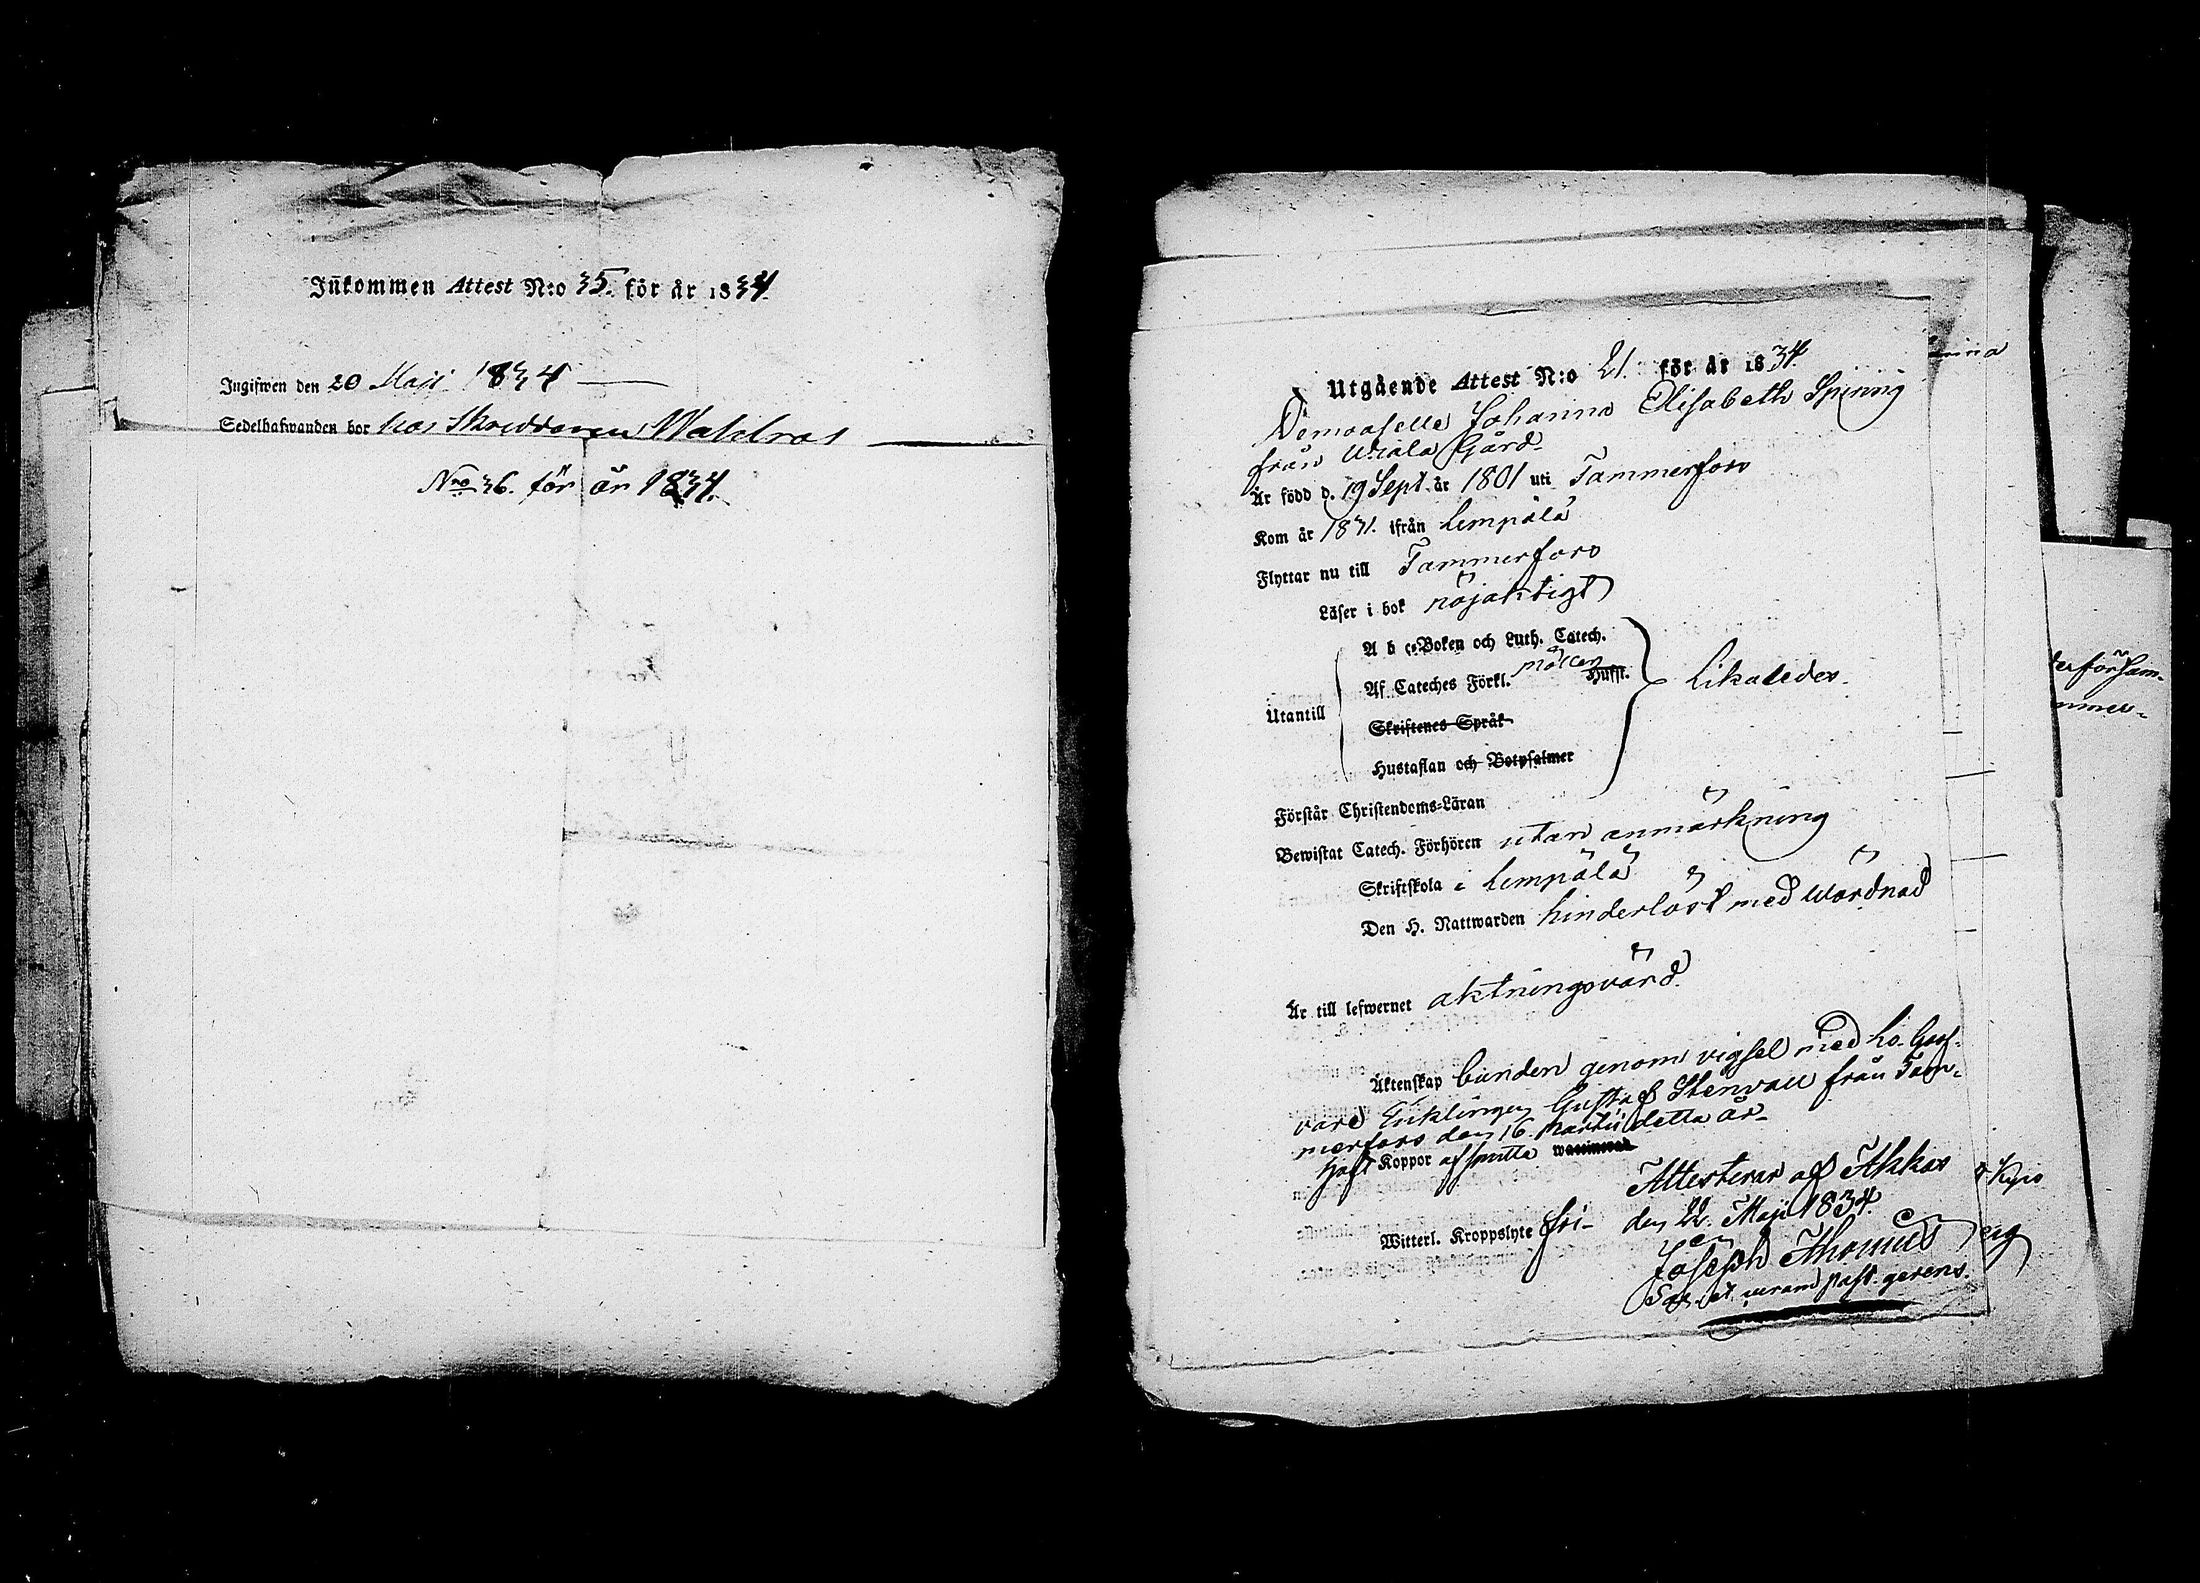 Inkommen Attest N:o 35. för år 1834.
Ingifwen den 20 Maji 1834
Sedelhafwanden bor hos Skräddaren Wahlros
Nro 36. för år 1834.
Utgående Attest N:o 21. för år 1834.
Demoaselle Johanna Elisabeth Spinnig
från Wiala Gård
Är född d. 19 Sept. år 1801 uti Tammerfors
Kom år 1831. ifrån Lempälä
Flyttar nu till Tammerfors
Läser i bok nöjaktigt
A b c-Boken och Luth. Catech.
Af Cateches Förkl. Möllers Husst.
Utantill
Likaledes.
Skriftenes Språk
Hustaflan och Botpsalmer
Förstår Christendoms-Läran
Bewistat Catech. Förhören utan anmärkning
Skriftskola i Lempälä
Den H. Nattwarden hinderlöst med wördnad
Är till lefwernet aktningsvärd.
Äktenskap bunden genom vigsel med
Gustaf Stenvall från Tam-
merfors den 16 Martii detta år
Haft Koppor af smitta
Attesterar af Akkas
Witterl. Kroppslyte fri den 22. Maji 1834.
Joseph
past. gerens.
nina
terförsam-
mmer-